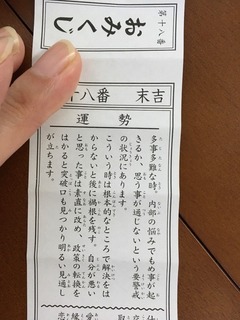 第十八番
おみくじ
十八番 末吉
運勢
多事多難な時。内部の悩みでもめ事が起
きるか、思う事が通じないという要警戒
の状況にあります。
こういう時は根本的なところで解決をは
からないと後に禍根を残す。自分が悪い
と思った事は素直に改め、政策の転換を
はかると突破口も見つかり明るい見通し
が立ちます。